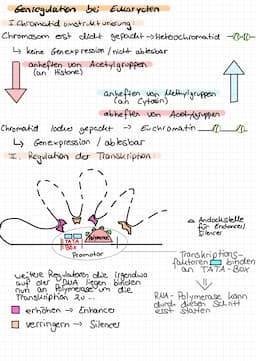 Genregulation bei Eukaryoten
I. Chromatidumstrukturierung
Chromosom erst dicht gepackt → Heterochromatid
↳ keine Genexpression / nicht ablesbar
anheften von Acetylgruppen
(an Histone)
anheften von Methylgruppen
(an Cytosin)
abheften von Acetylgruppen
Chromatid locker gepackt → Euchromatin
↳ Genexpression / ablesbar
II. Regulation der Transkription
Polymerase
TATA
BOX
Promotor
Andockstelle
für Enhancer/
Silencer
Transkriptions-
faktoren binden
an TATA-Box
⇓
RNA-Polymerase kann
durch diesen Schritt
erst starten
weitere Regulatoren die irgendwo
auf der DNA liegen binden
nun an Polymerase um die
Transkription zu ...
erhöhen → Enhancer
verringern → Silencer